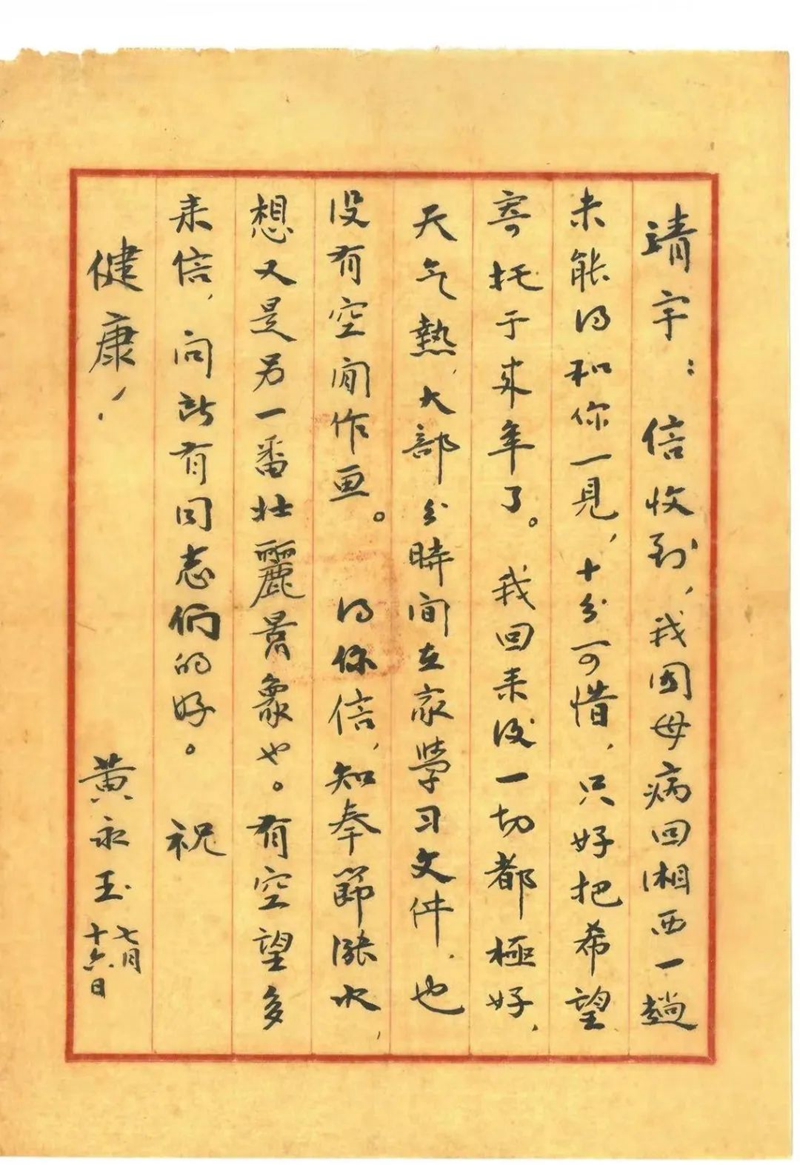 靖宇：信收到，我因母病回湘西一趟
未能得和你一見，十分可惜，只好把希望
寄托于来年了。我回来後一切都極好，
天气熱，大部分時间在家學习文件，也
没有空闲作画。得你信，知奉節漲水，
想又是另一番壮麗景象也。有空望多
来信，问所有同志们的好。祝
健康！
黄永玉
七月
十六日